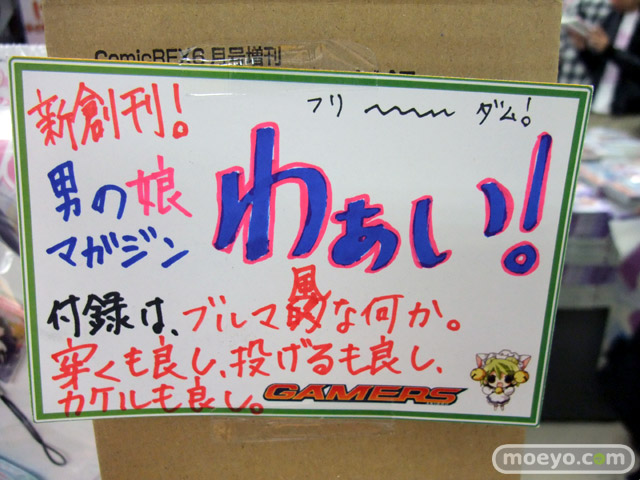 ComicREX6月号増刊
新創刊!
フリ〜〜〜ダム!
男の娘
マガジン
わぁい!
付録は、ブルマ風な何か。
穿くも良し、投げるも良し、
カケルも良し。
GAMERS
moeyo.com